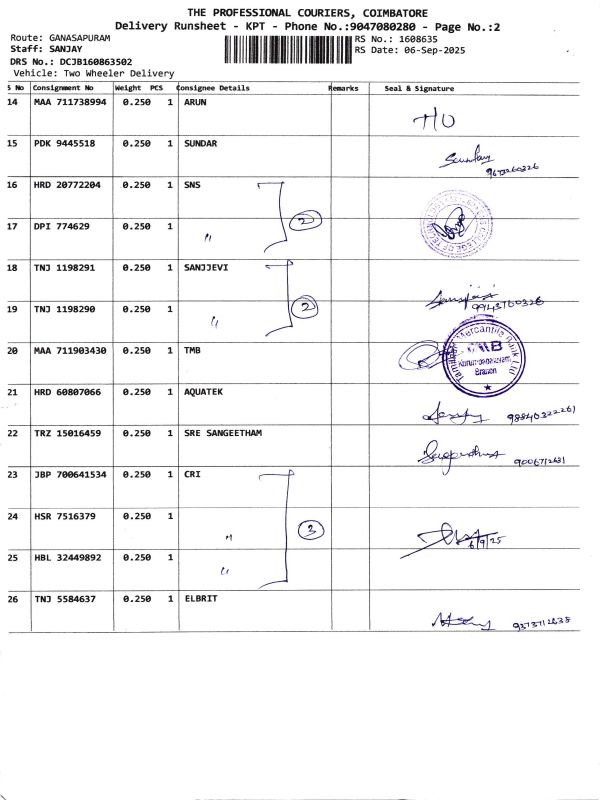 THE PROFESSIONAL COURIERS, COIMBATORE
Delivery Runsheet - KPT - Phone No.:9047080280 - Page No.:2
Route: GANASAPURAM
RS No.: 1608635
Staff: SANJAY
RS Date: 06-Sep-2025
DRS No.: DCJB160863502
Vehicle: Two Wheeler Delivery
S No Consignment No Weight PCS Consignee Details Remarks Seal & Signature
14 MAA 711738994 0.250 1 ARUN
15 PDK 9445518 0.250 1 SUNDAR
16 HRD 20772204 0.250 1 SNS
17 DPI 774629 0.250 1 〃 2
18 TNJ 1198291 0.250 1 SANJJEVI
19 TNJ 1198290 0.250 1 〃 2 9943760326
20 MAA 711903430 0.250 1 TMB
Tamilnad Mercantile Bank Ltd
Branch
21 HRD 60807066 0.250 1 AQUATEK
22 TRZ 15016459 0.250 1 SRE SANGEETHAM
23 JBP 700641534 0.250 1 CRI
24 HSR 7516379 0.250 1 〃 3 6/9/25
25 HBL 32449892 0.250 1 〃
26 TNJ 5584637 0.250 1 ELBRIT